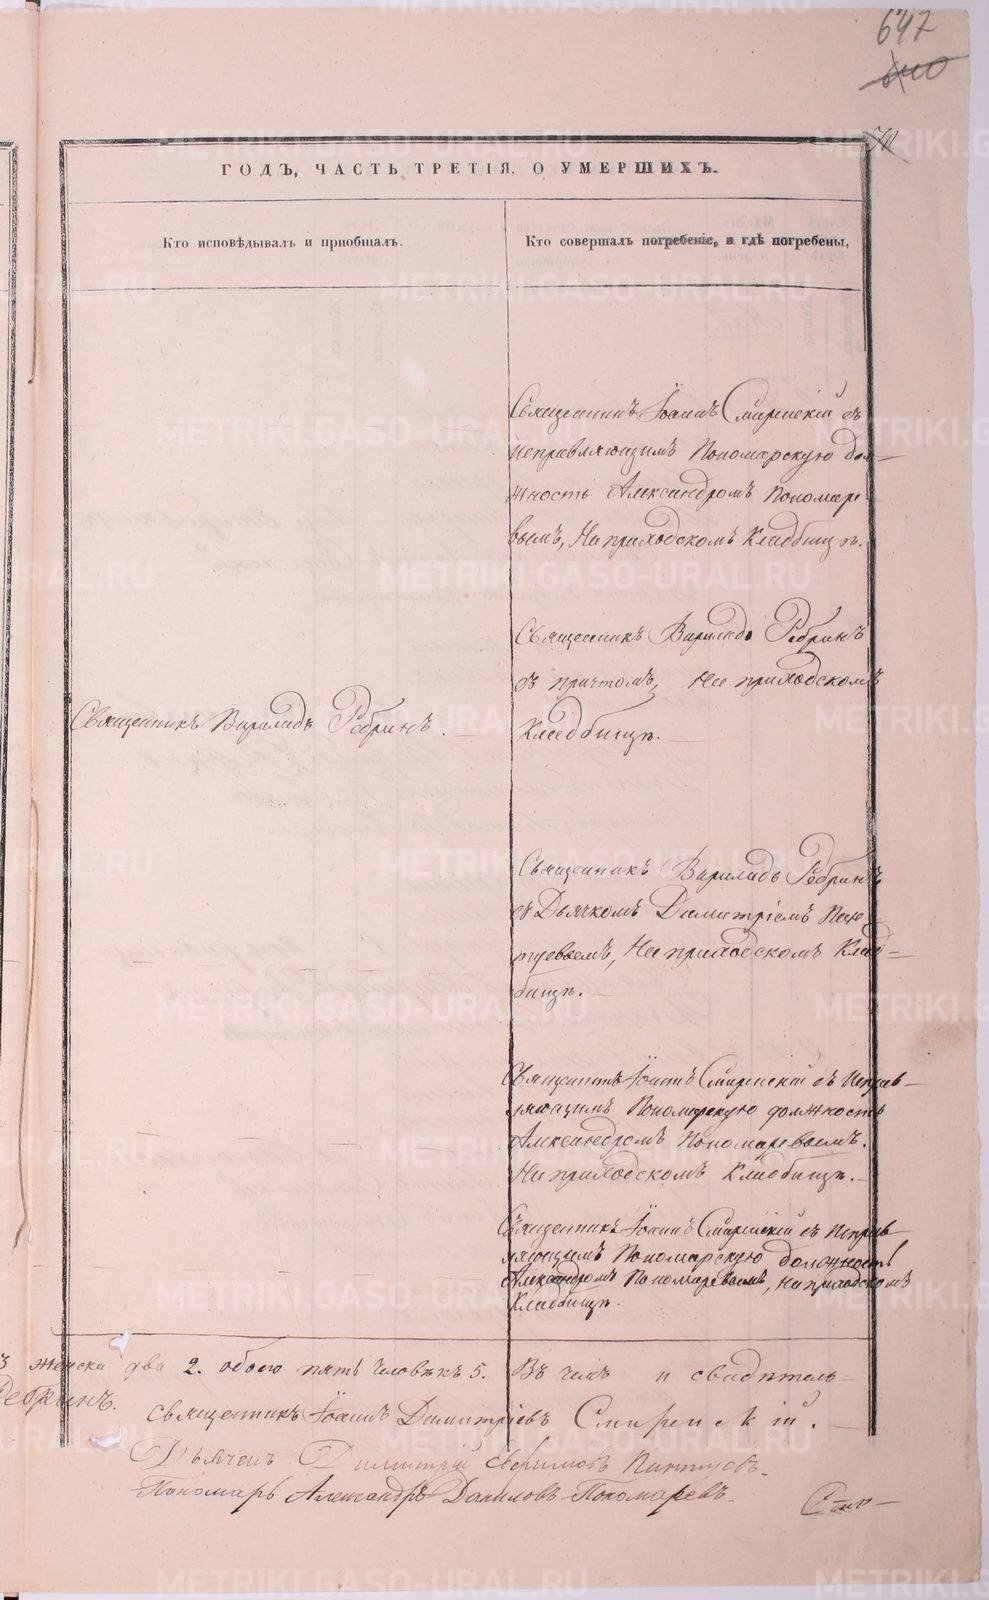 647
ГОДЪ, ЧАСТЬ ТРЕТІЯ, О УМЕРШИХЪ.
Кто исповѣдывалъ и пріобщалъ.
Кто совершалъ погребеніе, и гдѣ погребены,
Священникъ Іоаннъ Смиренскій съ
исправляющимъ Пономарскую дол-
жность Александромъ Пономаре-
вымъ, На приходскомъ Кладбищѣ.
Священникъ Ребринъ
съ причтомъ, На приходскомъ
Кладбищѣ.
Священникъ Ребринъ.
Священникъ Ребринъ
съ Дьячкомъ Димитріемъ Пан-
туевымъ, На приходскомъ Клад-
бищѣ.
Священникъ Іоаннъ Смиренскій съ Исправ-
ляющимъ Пономарскую должность
Александромъ Пономаревымъ.
На приходскомъ Кладбищѣ.
Священникъ Іоаннъ Смиренскій съ Исправ-
ляющимъ Пономарскую должность
Александромъ Пономаревымъ, на приходскомъ
Кладбищѣ.
женска два 2. обоего пять человѣкъ 5. Въ чемъ и свидѣтель-
Ребринъ.
священникъ Іоаннъ Димитріевъ Смиренскій.
Дьячекъ Димитрій Пантуевъ.
Пономарь Александръ Даниловъ Пономаревъ.
METRIKI.GASO-URAL.RU